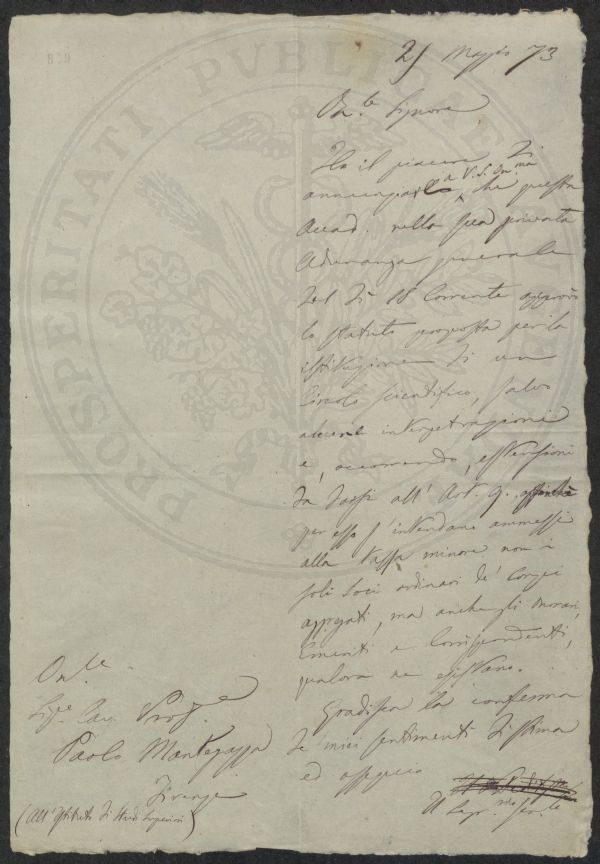 25 Maggio 73
On.le Signore
Ho il piacere di
annunziarle a V.S. On.ma che questa
Accad. nella sua privata
Adunanza generale
del dì 18 Corrente approvò
lo statuto proposto per la
istituzione di un
Circolo Scientifico, salvo
alcune interpetrazioni
e, occorrendo, estensioni
da darsi all' Art. 9. affinchè
per esso s' intendano ammessi
alla tassa minore non i
soli soci ordinari de' Corpi
aggregati, ma anche gli Onorari,
Emeriti e Corrispondenti,
qualora ne esistano.
Gradisca la conferma
de' miei sentimenti di stima
ed ossequio
Il Segr.
On.le
Sig.r Cav. Prof.
Paolo Mantegazza
Firenze
(All' Istituto di Studi Superiori)
PROSPERITATI PVBLICAE